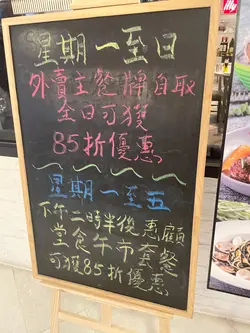 星期一至日
外賣主餐牌自取
全日可獲
85折優惠
星期一至五
下午二時半後惠顧
堂食午市套餐
可獲85折優惠